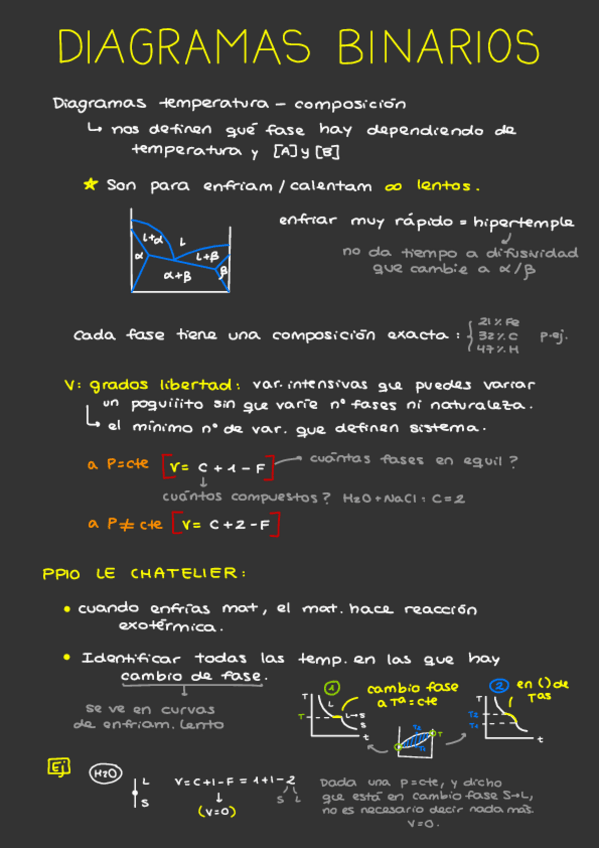 DIAGRAMAS BINARIOS
Diagramas temperatura - composición
↳ nos definen qué fase hay dependiendo de
temperatura y [A] y [B]
★ Son para enfriam / calentam ∞ lentos.
enfriar muy rápido = hipertemple
no da tiempo a difusividad
que cambie a α/β
L+α L
α L+β
α+β β
Cada fase tiene una composición exacta: { 21% Fe p.ej.
32% C
47% H
V: grados libertad: var. intensivas que puedes variar
un poquiiito sin que varíe nº fases ni naturaleza.
↳ el mínimo nº de var. que definen sistema.
a P=cte [V= C+1-F] → cuántas fases en equil?
cuántos compuestos? H2O+NaCl: C=2
a P≠cte [V= C+2-F]
PPIO LE CHATELIER:
• cuando enfrías mat, el mat. hace reacción
exotérmica.
• Identificar todas las temp. en las que hay
cambio de fase.
se ve en curvas
de enfriam. lento
① cambio fase
a Tª=cte
② en () de
Tas
T L L→S S t
T2 T1 T
T T2 T1 t
Ej H2O L S V=C+1-F = 1+1-2
S L
(V=0)
Dada una P=cte, y dicho
que está en cambio fase S→L,
no es necesario decir nada más.
V=0.